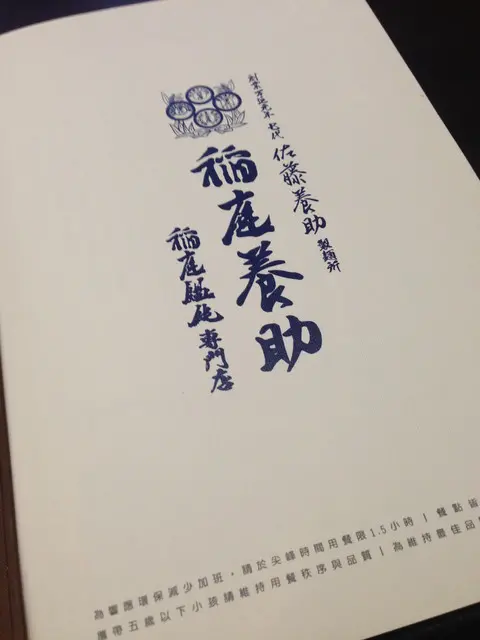 創業万延元年 七代 佐藤養助 製麺所
稲庭養助
稲庭饂飩專門店
為響應環保減少加班，請於尖峰時間用餐限1.5小時 | 餐點皆
攜帶五歲以下小孩請維持用餐秩序與品質 | 為維持最佳品